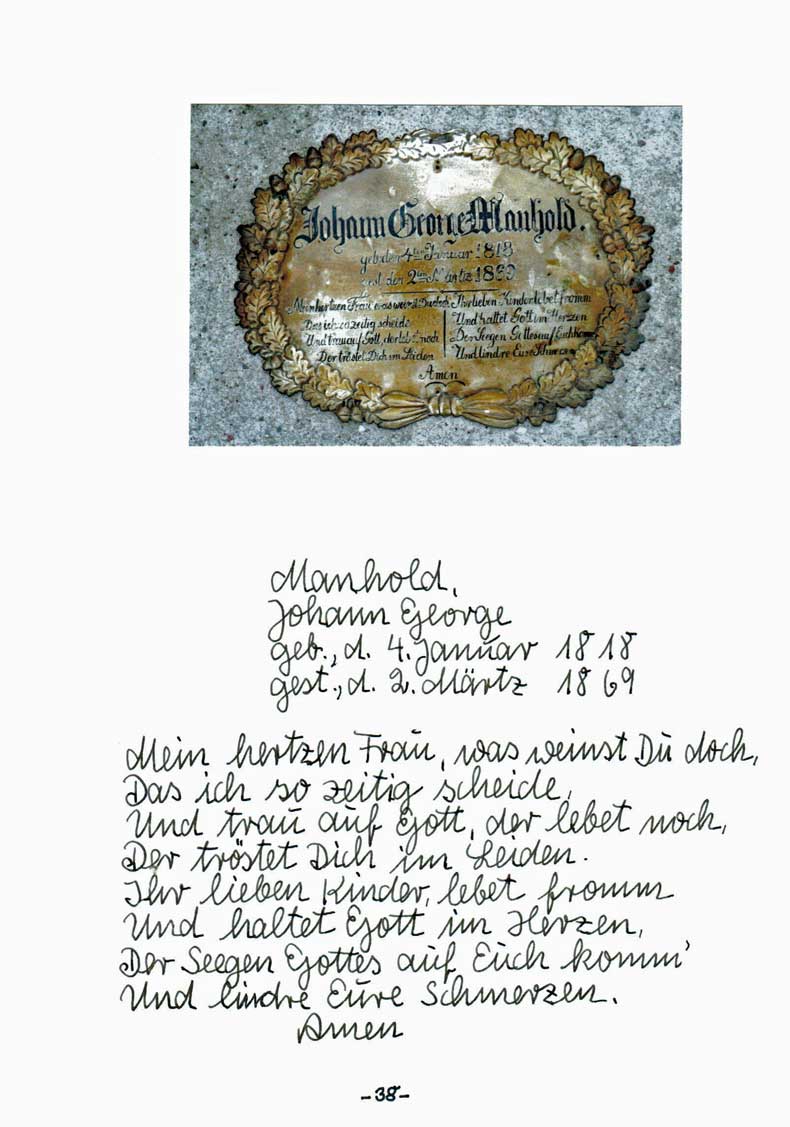 Johann George Manhold.
geb. den 4ten Januar 1818
gest. den 2ten Märtz 1869
Mein hertzen Frau, was weinst Du doch
Das ich so zeitig scheide
Und trau auf Gott, der lebet noch
Der tröstet Dich im Leiden
Ihr lieben Kinder lebet fromm
Und haltet Gott im Herzen
Der Seegen Gottes auf Euch komm
Und lindre Eure Schmerzen
Amen
Manhold,
Johann George
geb., d. 4. Januar 1818
gest., d. 2. Märtz 1869
Mein hertzen Frau, was weinst Du doch,
Das ich so zeitig scheide,
Und trau auf Gott, der lebet noch,
Der tröstet Dich im Leiden.
Ihr lieben Kinder, lebet fromm
Und haltet Gott im Herzen,
Der Seegen Gottes auf Euch komm'
Und lindre Eure Schmerzen.
Amen
-38-